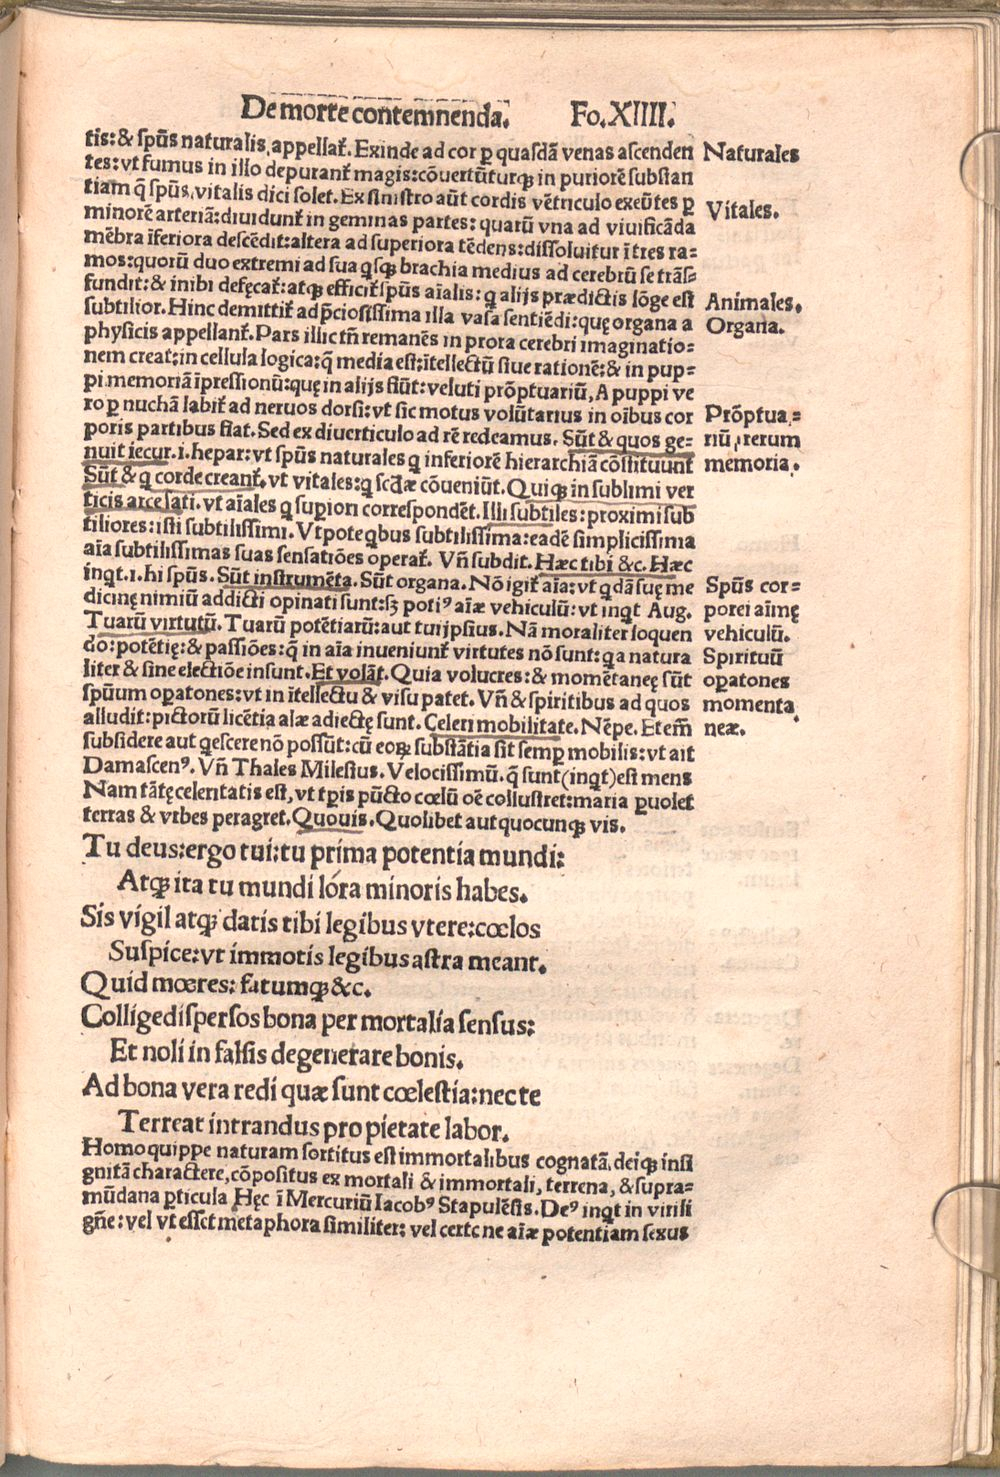 De morte contemnenda. Fo. XIIII.
tis: & spūs naturalis, appellat̄. Exinde ad cor p̱ quasdā venas ascenden
tes: vt fumus in illo depurant̄ magis: cōvertūturq̨ in puriorē substan
tiam q̄ spūs, vitalis dici solet. Ex sinistro aūt cordis vētriculo exeūtes p̱
minorē arteriā: diuidunt̄ in geminas partes: quarū vna ad viuificāda
mēbra īferiora descēdit: altera ad superiora tēdens: dissoluitur ī tres ra=
mos: quorū duo extremi ad sua q̄sq̨ brachia medius ad cerebrū se trās=
fundit: & inibi defęcat̄: atq̨ efficit̄ spūs aīalis: q̄ alijs prædictis lōge est
subtilior. Hinc demittit̄ ad p̄ciosissima illa vasa sentiēdi: quę organa a
physicis appellant̄. Pars illic tn̄ remanēs in prora cerebri imaginatio=
nem creat: in cellula logica: q̄ media est: ītellectū siue rationē: & in pup=
pi memoriā īpressionū: quę in alijs fiūt: veluti prōptuariū, A puppi ve
ro p̱ nuchā labit̄ ad neruos dorsi: vt sic motus volūtarius in oībus cor
poris partibus fiat. Sed ex diuerticulo ad rē redeamus. Sūt & quos ge=
nuit iecur. i. hepar: vt spūs naturales q̄ inferiorē hierarchiā cōstituunt
Sūt & q̄ corde creant̄. vt vitales: q̄ scd̄æ cōueniūt. Quiq̨ in sublimi ver
ticis arce sati. vt aīales q̄ sup̱ion correspondēt. Illi subtiles: proximi sub
tiliores: isti subtilissimi. Vtpote q̄bus subtilissima: eadē simplicissima
aīa subtilissimas suas sensatiōes operat̄. Vn̄ subdit. Hæc tibi &c. Hæc
inq̄t. i. hi spūs. Sūt instrumēta. Sūt organa. Nō igit̄ aīa: vt q̄dā suę me
dicinę nimiū addicti opinati sunt: sꝫ poti⁹ aīæ vehiculū: vt inq̄t Aug.
Tuarū virtutū. Tuarū potētiarū: aut tui jpsius. Nā moraliter loquen
do: potētię: & passiōes: q̄ in aīa inueniunt̄ virtutes nō sunt: q̄a natura
liter & sine electiōe insunt. Et volāt. Quia volucres: & momētaneę sūt
spūum op̱atones: vt in ītellectu & visu patet. Vn̄ & spiritibus ad quos
alludit: pictorū licētia alæ adiectę sunt. Celeri mobilitate. Nēpe. Etem̄
subsidere aut q̄escere nō possūt: cū eoꝝ substātia sit semp̱ mobilis: vt ait
Damascen⁹. Vn̄ Thales Milesius. Velocissimū. q̄ sunt (inq̄t) est mens
Nam tātę celeritatis est, vt tp̄is pūcto cœlū oē collustret: maria p̱uolet
terras & vrbes peragret. Quouis. Quolibet aut quocunq̨ vis.
Tu deus: ergo tui: tu prima potentia mundi:
Atq̨ ita tu mundi lóra minoris habes.
Sis vigil atq̨ datis tibi legibus vtere: cœlos
Suspice: vt immotis legibus astra meant.
Quid mœres: fatumq̨ &c.
Collige dispersos bona per mortalia sensus:
Et noli in falsis degenerare bonis.
Ad bona vera redi quæ sunt cœlestia: nec te
Terreat intrandus pro pietate labor.
Homo quippe naturam sortitus est immortalibus cognatā, deiq̨ insi
gnitā charactere, cōpositus ex mortali & immortali, terrena, & supra=
mūdana p̱ticula Hęc ī Mercuriū Iacob⁹ Stapulēsis. De⁹ inq̄t in virili
gn̄e: vel vt esset metaphora similiter: vel certe ne aīæ potentiam sexus
Naturales
Vitales.
Animales.
Organa.
Prōptua=
riū, rerum
memoria.
Spūs cor=
porei aīmę
vehiculū.
Spirituū
op̱atones
momenta
neæ.